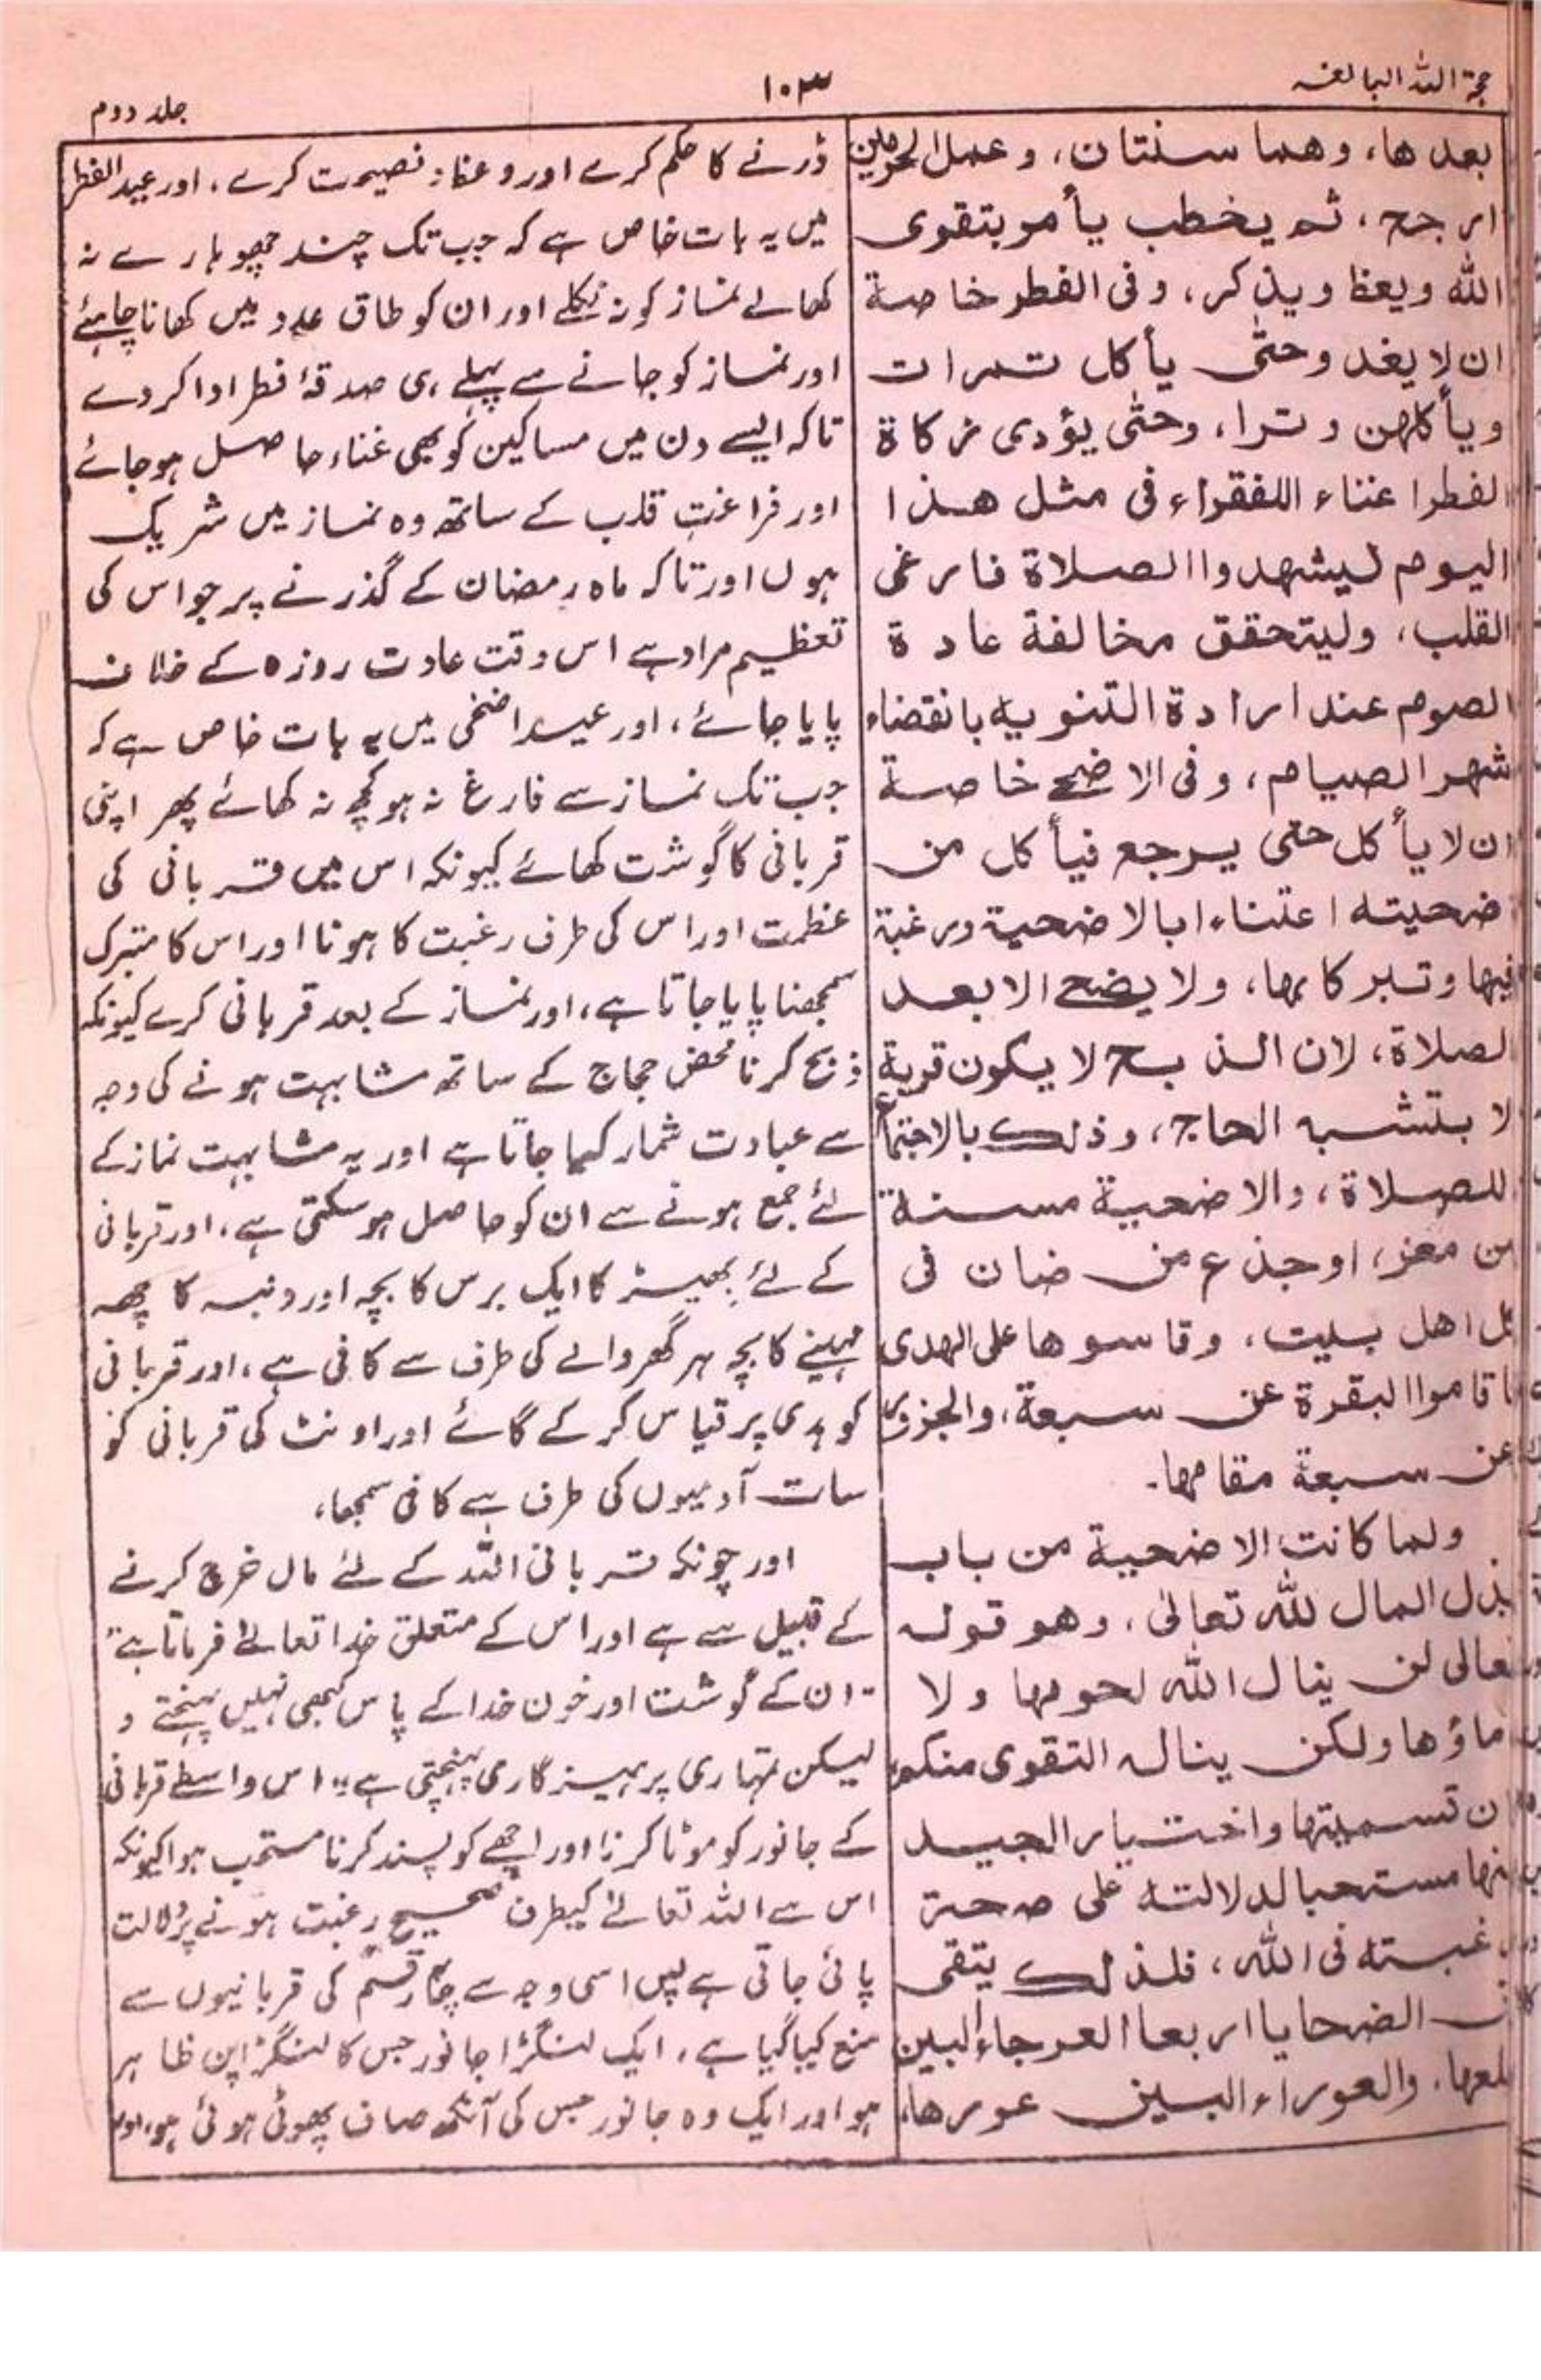 حجۃ اللہ البالغہ
۱۰۳
جلد دوم
بعدها، وهما سنتان، وعمل الحرمين
ارجح، ثم يخطب يأمر بتقوى
الله ويعظ ويذكر، وفى الفطر خاصة
ان لا يغدو حتى يأكل تمرات
ويأكلهن وترا، وحتى يؤدى زكاة
الفطر اغناء اللفقراء فى مثل هذا
اليوم ليشهدوا الصلاة فارغى
القلب، وليتحقق مخالفة عادة
الصوم عند ارادة التنويه بانقضاء
شهر الصيام، وفى الاضحى خاصة
ان لا يأكل حتى يرجع فيأكل من
اضحيته اعتناء ابالاضحية ورغبة
فيها وتبركا بها، ولا يضحى الا بعد
الصلاة، لان الذبح لا يكون قربة
لا بتشبه الحاج، وذلك بالاجتماع
للصلاة، والاضحية مسنة
من معز، او جذع من ضان فى
كل اهل بيت، وقاسوها على الهدى
فاقاموا البقرة عن سبعة، والجزور
عن سبعة مقامها۔
ولما كانت الاضحية من باب
بذل المال لله تعالى، وهو قوله
تعالى لن ينال الله لحومها ولا
دماؤها ولكن يناله التقوى منكم
ن تسميتها واختيار الجيد
منها مستحبا لدلالته على صحة
رغبته فى الله، فلذلك يتقى
من الضحايا اربعا العرجاء البين
ظلعها، والعوراء البين عورها،
ڈرنے کا حکم کرے اور وعظ و نصیحت کرے، اور عید الفطر
میں یہ بات خاص ہے کہ جب تک چند چھوہارے نہ
کھالے نماز کو نہ نکلے اور ان کو طاق عدد میں کھانا چاہئے
اور نماز کو جانے سے پہلے ہی صدقۂ فطر ادا کر دے
تاکہ ایسے دن میں مساکین کو بھی غناء حاصل ہو جائے
اور فراغت قلب کے ساتھ وہ نماز میں شریک
ہوں اور تاکہ ماہ رمضان کے گذرنے پر جو اس کی
تعظیم مراد ہے اس وقت عادت روزہ کے خلاف
پایا جائے، اور عید اضحی میں یہ بات خاص ہے کہ
جب تک نماز سے فارغ نہ ہو کچھ نہ کھائے پھر اپنی
قربانی کا گوشت کھائے کیونکہ اس میں قربانی کی
عظمت اور اس کی طرف رغبت کا ہونا اور اس کا متبرک
سمجھنا پایا جاتا ہے، اور نماز کے بعد قربانی کرے کیونکہ
ذبح کرنا محض حجاج کے ساتھ مشابہت ہونے کی وجہ
سے عبادت شمار کیا جاتا ہے اور یہ مشابہت نماز کے
لئے جمع ہونے سے ان کو حاصل ہو سکتی ہے، اور قربانی
کے لئے بھیڑ کا ایک برس کا بچہ اور دنبہ کا چھہ
مہینے کا بچہ ہر گھر والے کی طرف سے کافی ہے، اور قربانی
کو ہدی پر قیاس کر کے گائے اور اونٹ کی قربانی کو
سات آدمیوں کی طرف سے کافی سمجھا،
اور چونکہ قربانی اللہ کے لئے مال خرچ کرنے
کے قبیل سے ہے اور اس کے متعلق خدا تعالےٰ فرماتا ہے "
ان کے گوشت اور خون خدا کے پاس کبھی نہیں پہنچتے و
لیکن تمہاری پرہیزگاری پہنچتی ہے" اس واسطے قربانی
کے جانور کو موٹا کرنا اور اچھے کو پسند کرنا مستحب ہوا کیونکہ
اس سے اللہ تعالےٰ کیطرف صحیح رغبت ہونے پر دلالت
پائی جاتی ہے پس اسی وجہ سے چار قسم کی قربانیوں سے
منع کیا گیا ہے، ایک لنگڑا جانور جس کا لنگڑاپن ظاہر
ہو اور ایک وہ جانور جس کی آنکھ صاف پھوٹی ہوئی ہو، اور